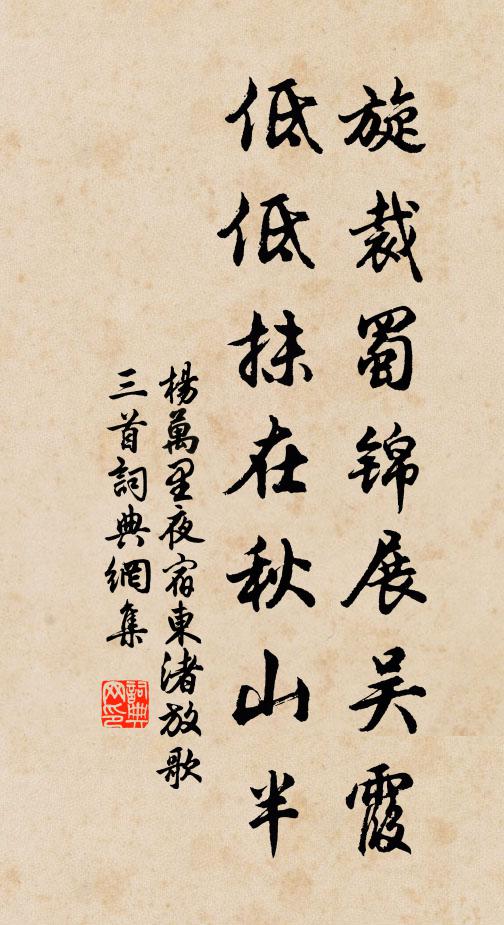 旋裁蜀錦展吴霞
低低抹在秋山半
楊萬里夜宿東渚放歌
三首詞典網集
詞典
网印